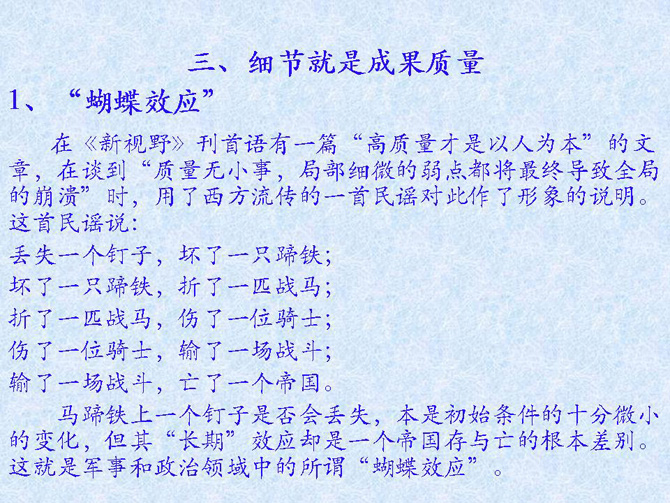 三、细节就是成果质量
1、“蝴蝶效应”
在《新视野》刊首语有一篇“高质量才是以人为本”的文
章，在谈到“质量无小事，局部细微的弱点都将最终导致全局
的崩溃”时，用了西方流传的一首民谣对此作了形象的说明。
这首民谣说：
丢失一个钉子，坏了一只蹄铁；
坏了一只蹄铁，折了一匹战马；
折了一匹战马，伤了一位骑士；
伤了一位骑士，输了一场战斗；
输了一场战斗，亡了一个帝国。
马蹄铁上一个钉子是否会丢失，本是初始条件的十分微小
的变化，但其“长期”效应却是一个帝国存与亡的根本差别。
这就是军事和政治领域中的所谓“蝴蝶效应”。